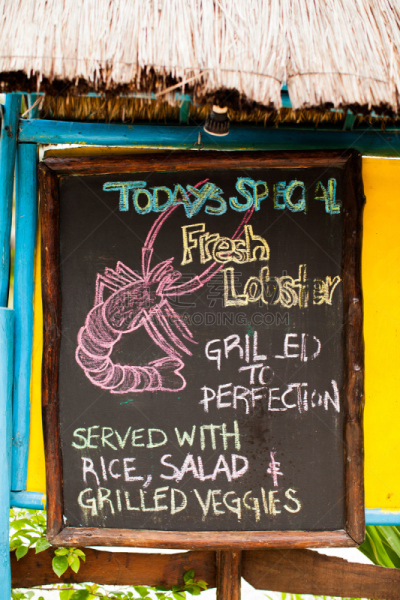 TODAYS SPECial
Fresh
Lobster
GRILLED
TO
PERFECTION
SERVED WITH
RICE, SALAD &
GRILLED VEGGIES